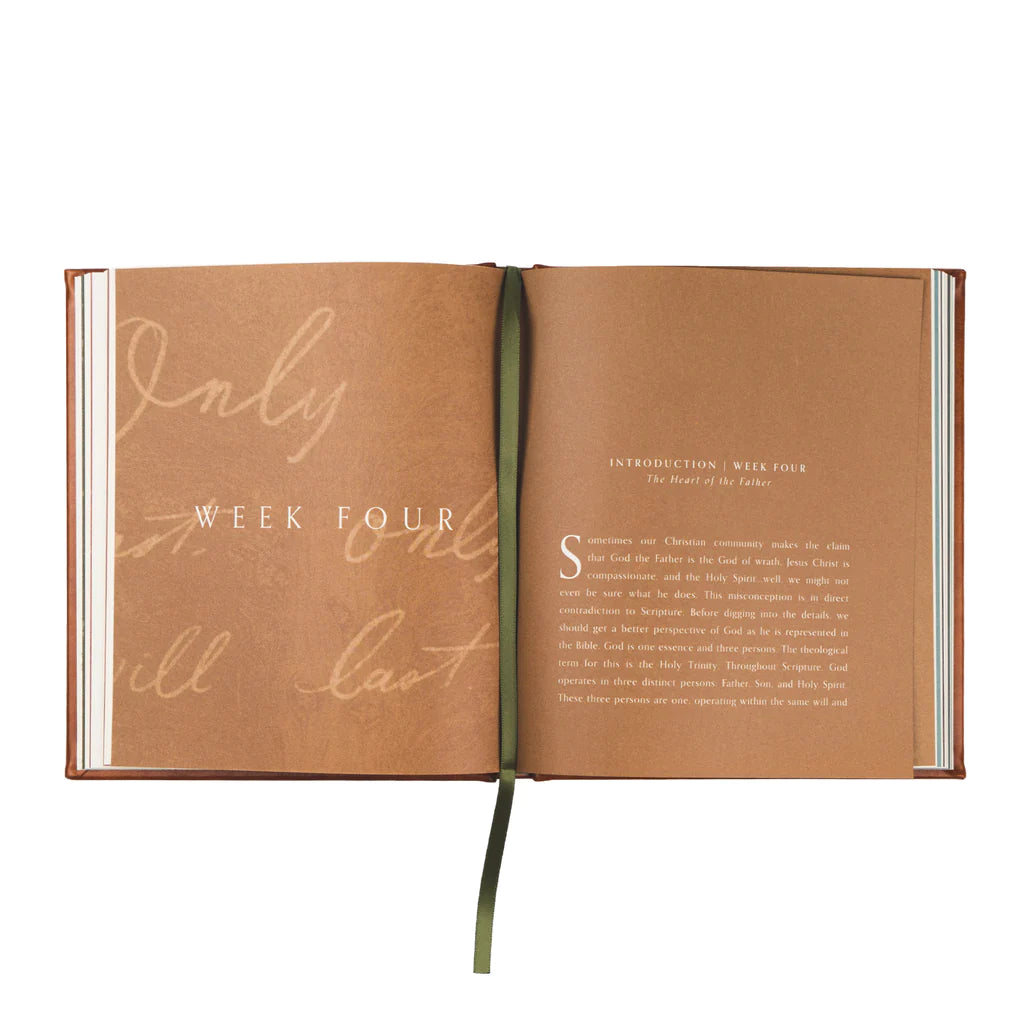 Only
WEEK FOUR
only
will last
INTRODUCTION | WEEK FOUR
The Heart of the Father
Sometimes our Christian community makes the claim
that God the Father is the God of wrath, Jesus Christ is
compassionate, and the Holy Spirit...well, we might not
even be sure what he does. This misconception is in direct
contradiction to Scripture. Before digging into the details, we
should get a better perspective of God as he is represented in
the Bible. God is one essence and three persons. The theological
term for this is the Holy Trinity. Throughout Scripture, God
operates in three distinct persons: Father, Son, and Holy Spirit.
These three persons are one, operating within the same will and